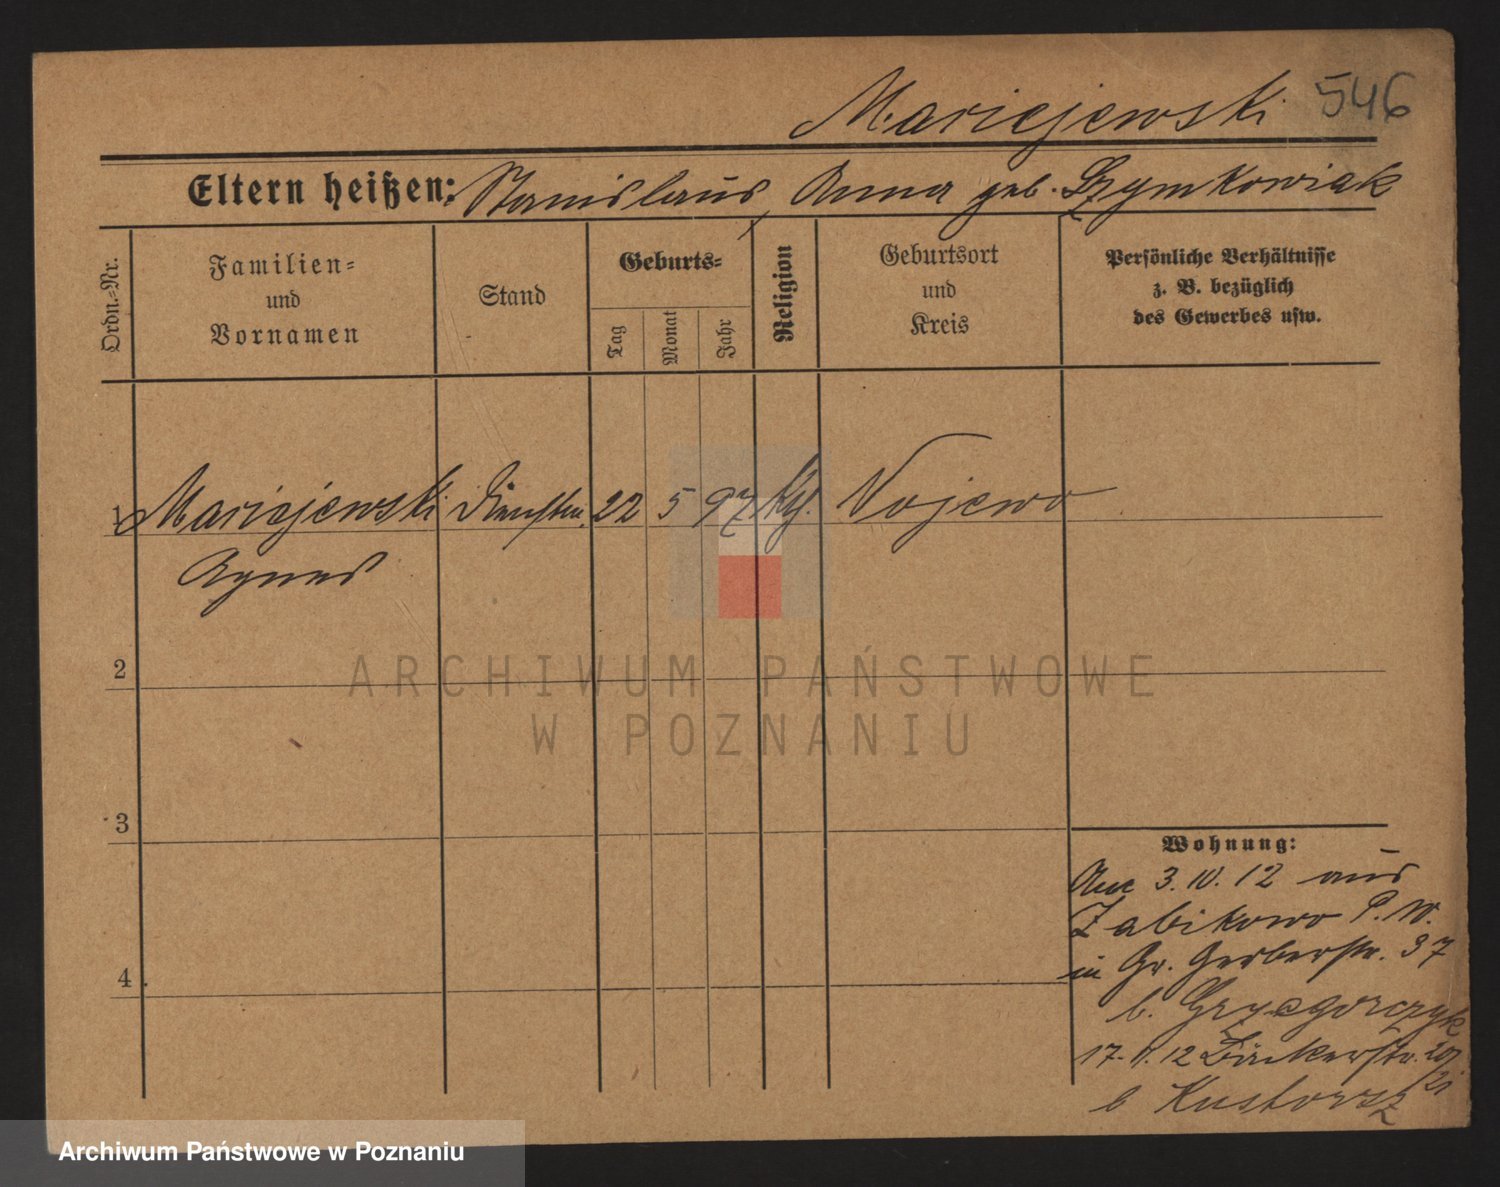 Mariejewski 546
Eltern heißen: Stanislaus, Anna geb. Szymkowiak
Ordn.-Nr.
Familien-
und
Vornamen
Stand
Geburts-
Tag
Monat
Jahr
Religion
Geburtsort
und
Kreis
Persönliche Verhältnisse
z. B. bezüglich
des Gewerbes usw.
1 Mariejewski Dienstm. 22 5 97 kg. Nojewo
Agnes
2
3
4
Wohnung:
Am 3.10.12 aus
Zabikowo P. W.
in Gr. Gerberstr. 37
b. Grzegorczyk
17. 12 Bäckerstr.
b
ARCHIWUM PAŃSTWOWE
W POZNANIU
Archiwum Państwowe w Poznaniu